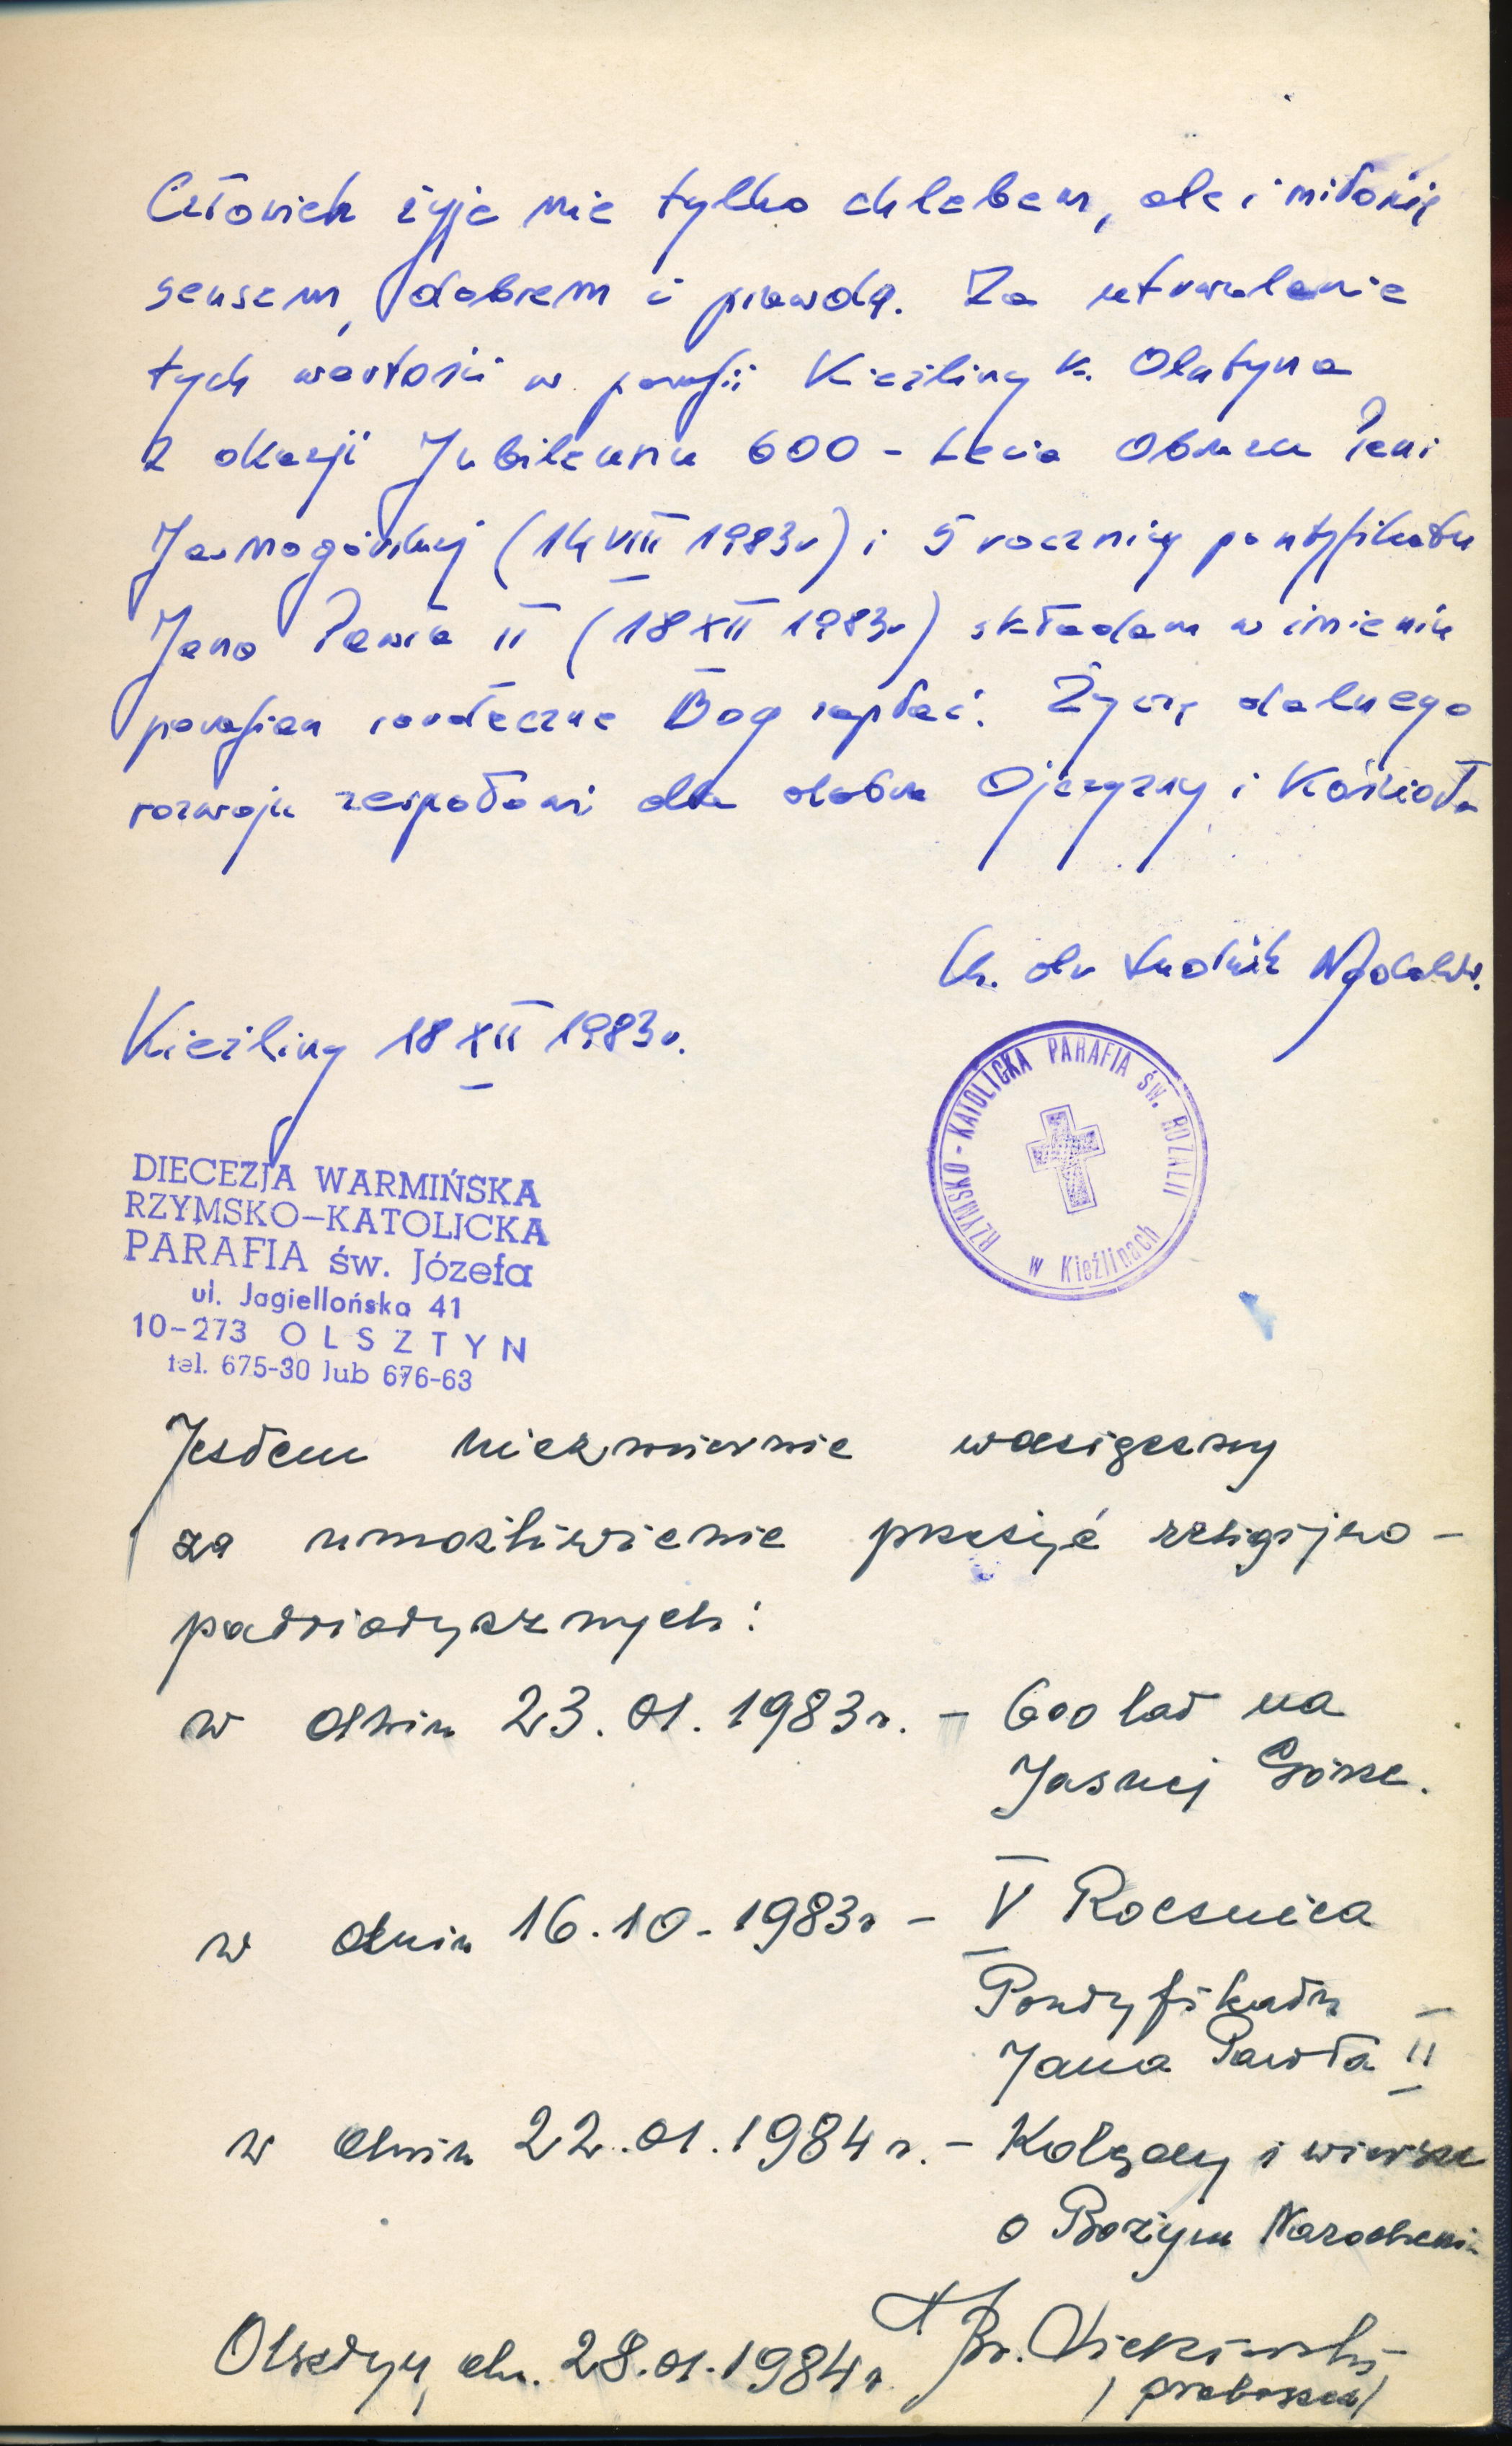 Człowiek żyje nie tylko chlebem, ale i miłością
sensem, dobrem i prawdą. Za utrwalenie
tych wartości w parafii Kieźliny k. Olsztyna
z okazji Jubileuszu 600-lecia Obrazu Pani
Jasnogórskiej (14 VIII 1983r) i 5 rocznicy pontyfikatu
Jana Pawła II (18 XII 1983r) składam w imieniu
parafian serdeczne Bóg zapłać. Życzę dalszego
rozwoju zespołowi dla dobra Ojczyzny i Kościoła
Ks. dr Ludwik
Kieźliny 18 XII 1983r.
RZYMSKO-KATOLICKA PARAFIA ŚW. ROZALII
w Kieźlinach
DIECEZJA WARMIŃSKA
RZYMSKO-KATOLICKA
PARAFIA św. Józefa
ul. Jagiellońska 41
10-273 OLSZTYN
tel. 675-30 lub 676-63
Jestem niezmiernie wdzięczny
za umożliwienie przeżyć religijno-
patriotycznych:
w dniu 23.01.1983r. - 600 lat na
Jasnej Górze.
w dniu 16.10.1983r - V Rocznica
Pontyfikatu
Jana Pawła II
w dniu 22.01.1984r. - Kolędy i wiersze
o Bożym Narodzeniu
Olsztyn, dn. 28.01.1984r
/proboszcz/